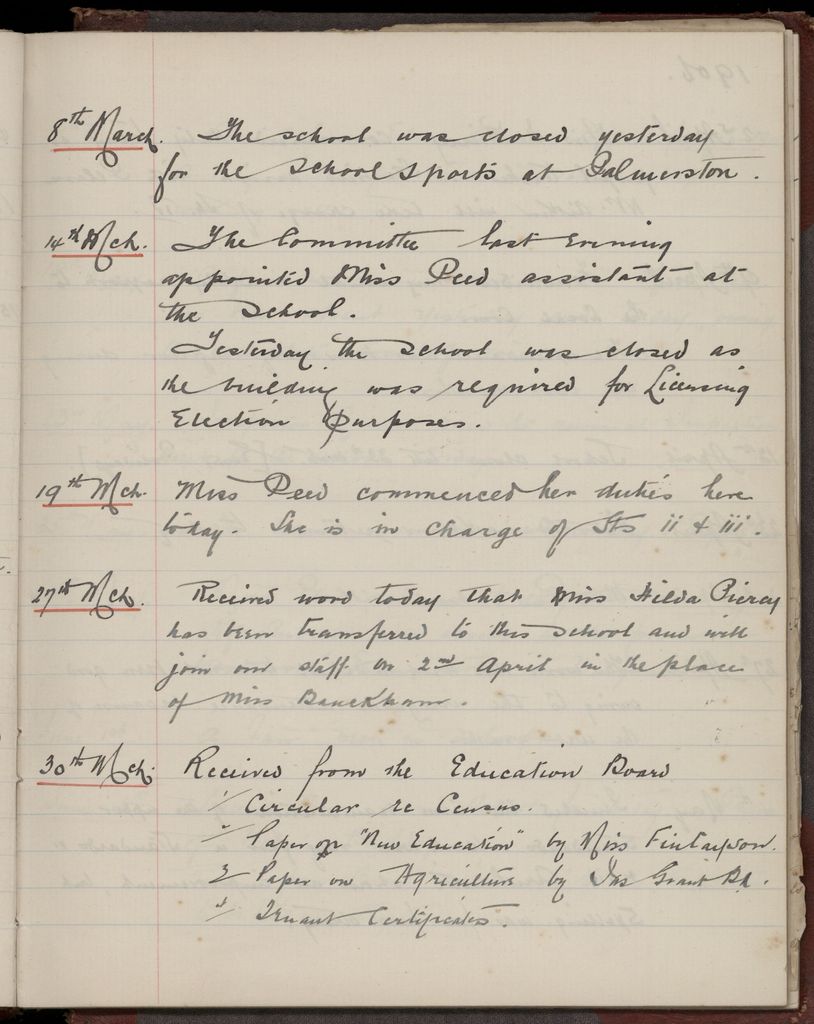 8th March. The school was closed yesterday
for the School Sports at Palmerston.
14th Mch. The Committee last evening
appointed Miss Peed assistant at
the School.
Yesterday the school was closed as
the building was required for Licensing
Election Purposes.
19th Mch. Miss Peed commenced her duties here
today. She is in charge of Sts ii & iii.
27th Mch. Received word today that Miss Hilda Piercy
has been transferred to this school and will
join our staff on 2nd April in the place
of Miss Banckham.
30th Mch. Received from the Education Board
1/ Circular re Census.
2/ Paper on "New Education" by Miss Finlayson.
3 Paper on Agriculture by Jas Grant
4/ Certificates.